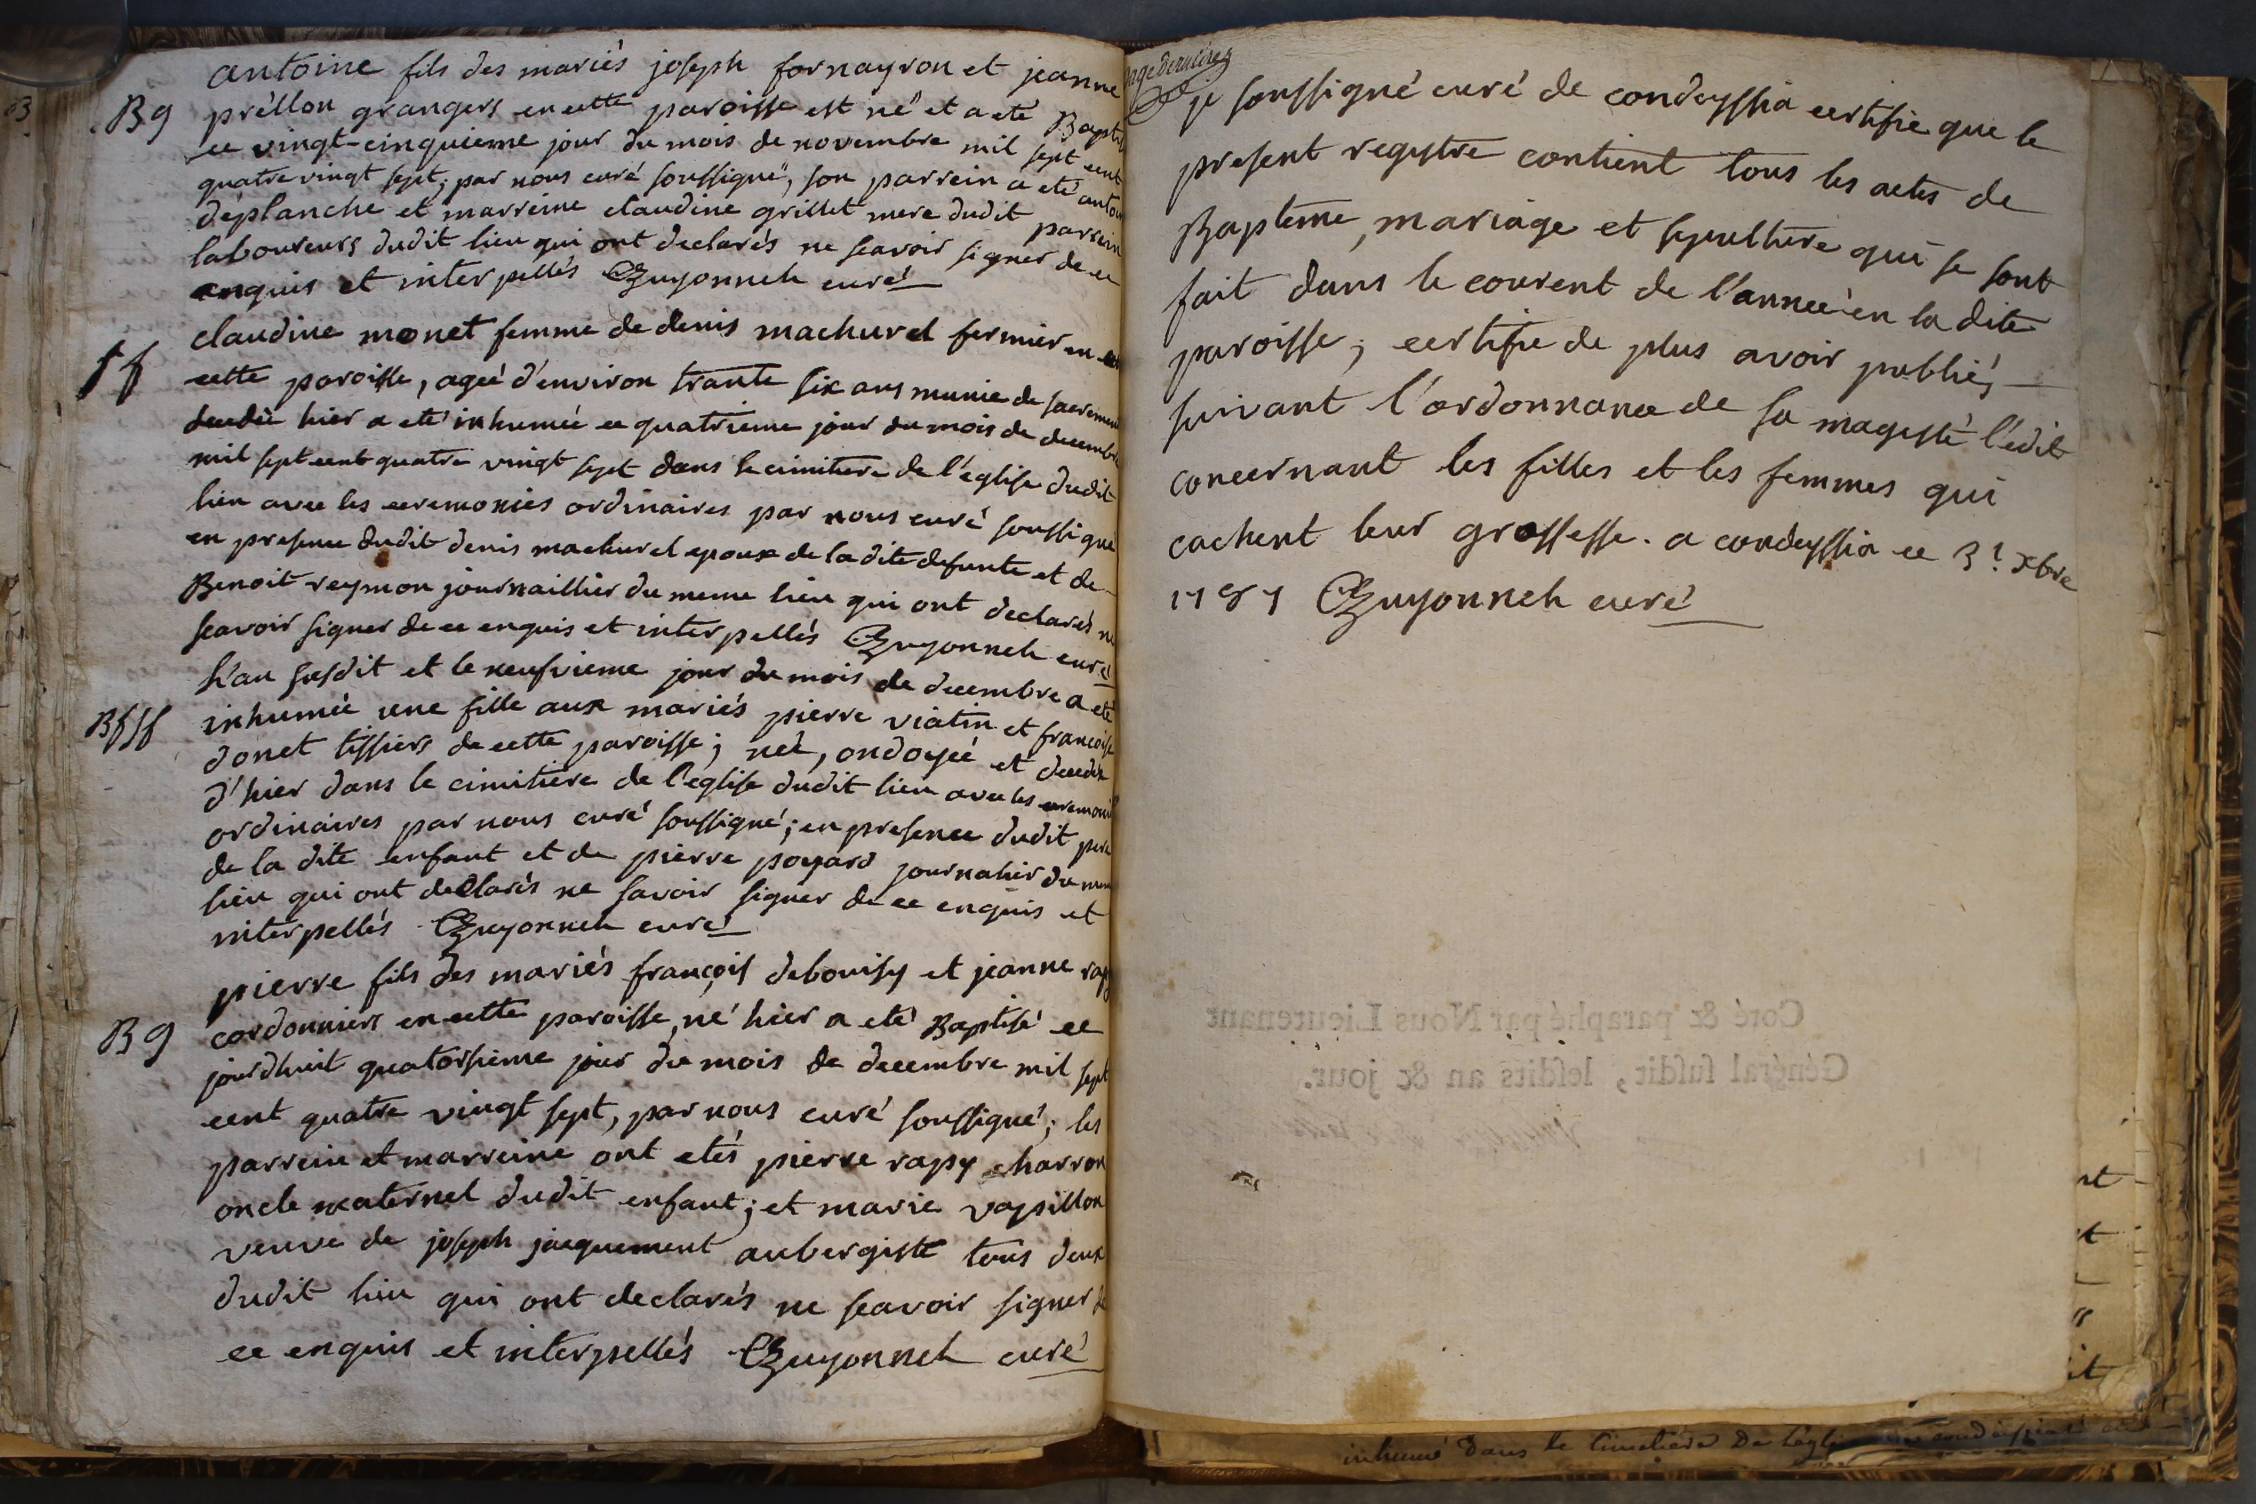 B g
antoine fils des mariés joseph fornayron et jeanne
prèllon grangers en cette paroisse est né et a eté Baptis
ce vingt-cinquieme jour du mois de novembre mil sept cent
quatre vingt sept, par nous curé soussigné, son parrein a eté antoin
deplanche et marreine claudine grillet mere dudit parrein
laboureurs dudit lieu qui ont declarés ne scavoir signer de ce
enquis et interpellés Guyonneh curé
S f
claudine monet femme de denis machurel fermier en
cette paroisse, ageé d'environ trante six ans munie de sacrement
decedée hier a eté inhumée ce quatrieme jour du mois de decembre
mil sept cent quatre vingt sept dans le cimitiere de l'église dudit
lieu avec les ceremonies ordinaires par nous curé soussigné
en presence dudit denis machurel epoux de la dite defunte et de
Benoit reymon journaillier du meme lieu qui ont declarés ne
scavoir signer de ce enquis et interpellés Guyonneh curé
B f S f
L'an susdit et le neufvieme jour du mois de decembre a eté
inhumée une fille aux mariés pierre viatin et francoise
donet tissiers de cette paroisse; neé, ondoyeé et decedée
d'hier dans le cimitiere de l'eglise dudit lieu avec les ceremonies
ordinaires par nous curé soussigné; en presence dudit pere
de la dite enfant et de pierre poyard journalier du meme
lieu qui ont declarés ne savoir signer de ce enquis et
interpellés Guyonneh curé
B g
pierre fils des mariés françois debouisy et jeanne rapy
cordonniers en cette paroisse, né hier a eté Baptisé ce
jourdhuit quatorsieme jour du mois de decembre mil sept
cent quatre vingt sept, par nous curé soussigné; les
parrein et marreine ont etés pierre rapy charron
oncle maternel dudit enfant; et marie vapsillon
veuve de joseph jacquement aubergiste tous deux
dudit lieu qui ont declarés ne scavoir signer de
ce enquis et interpellés Guyonneh curé
page derniere
je soussigné curé de condeyssia certifie que le
present regystre contient tous les actes de
Bapteme, mariage et sepulture qui se sont
fait dans le courent de l'anneé en la dite
paroisse; certifie de plus avoir publiés
suivant l'ordonnance de sa magesté l'édit
concernant les filles et les femmes qui
cachent leur grossesse. a condeyssia ce 31 xbre
1787 Guyonneh curé
Coté & paraphé par Nous Lieutenant
Général susdit, lesdits an & jour.
inhumé dans le Cimetiere De l'église